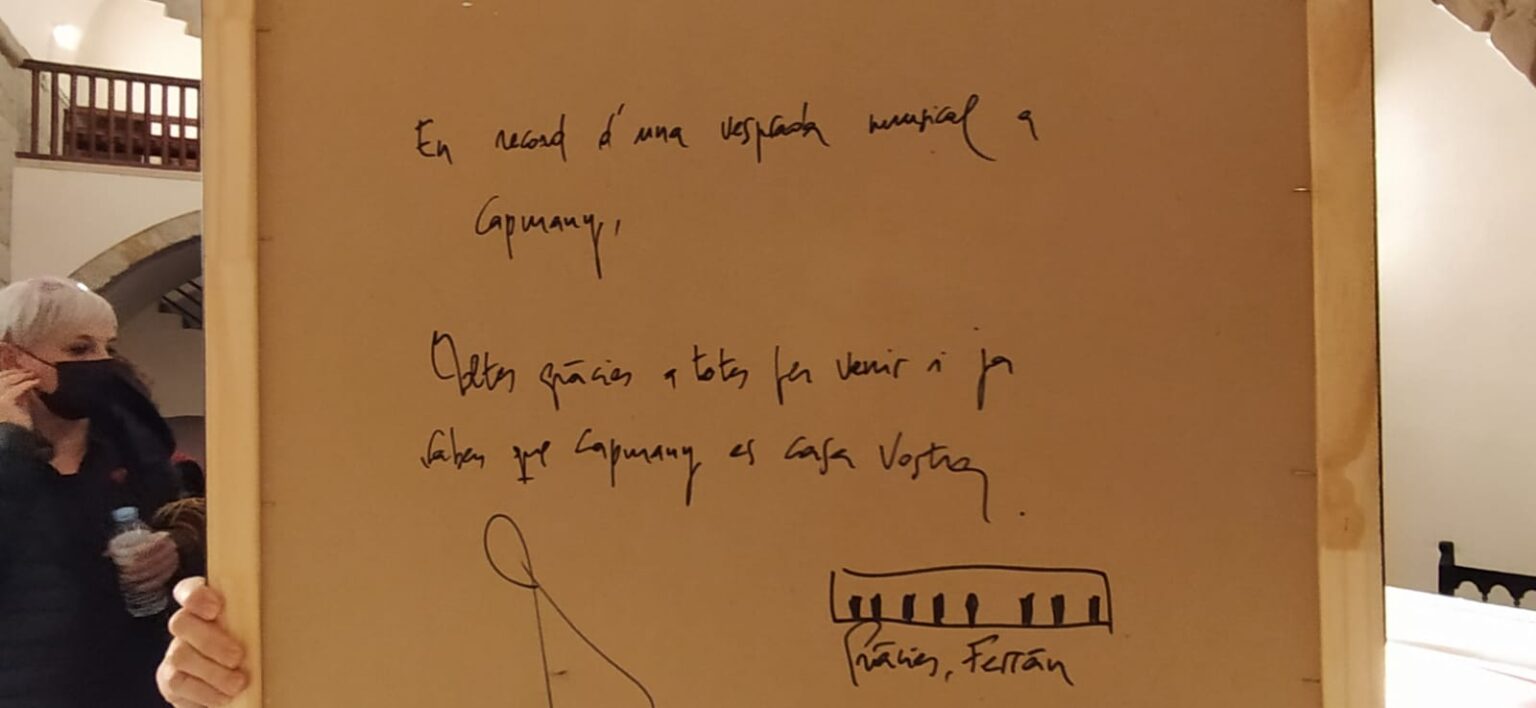 En record d'una vesprada musical a
Capmany,
Moltes gràcies a totes per venir i ja
saben que Capmany es casa vostra.
Gràcies, Ferrán